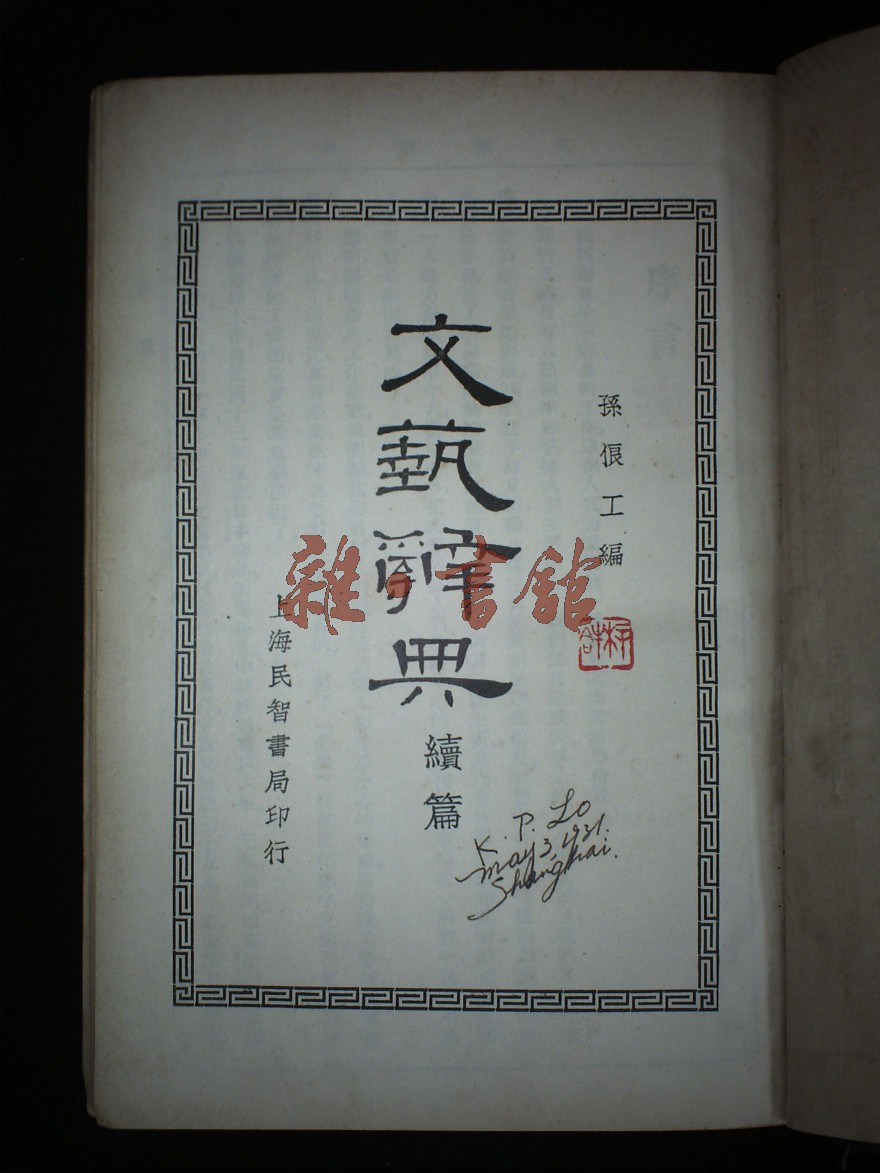 孫俍工編
文藝辭典
續篇
上海民智書局印行
K. P. Lo
May 3, 1931.
Shanghai.
雜·書館
序言